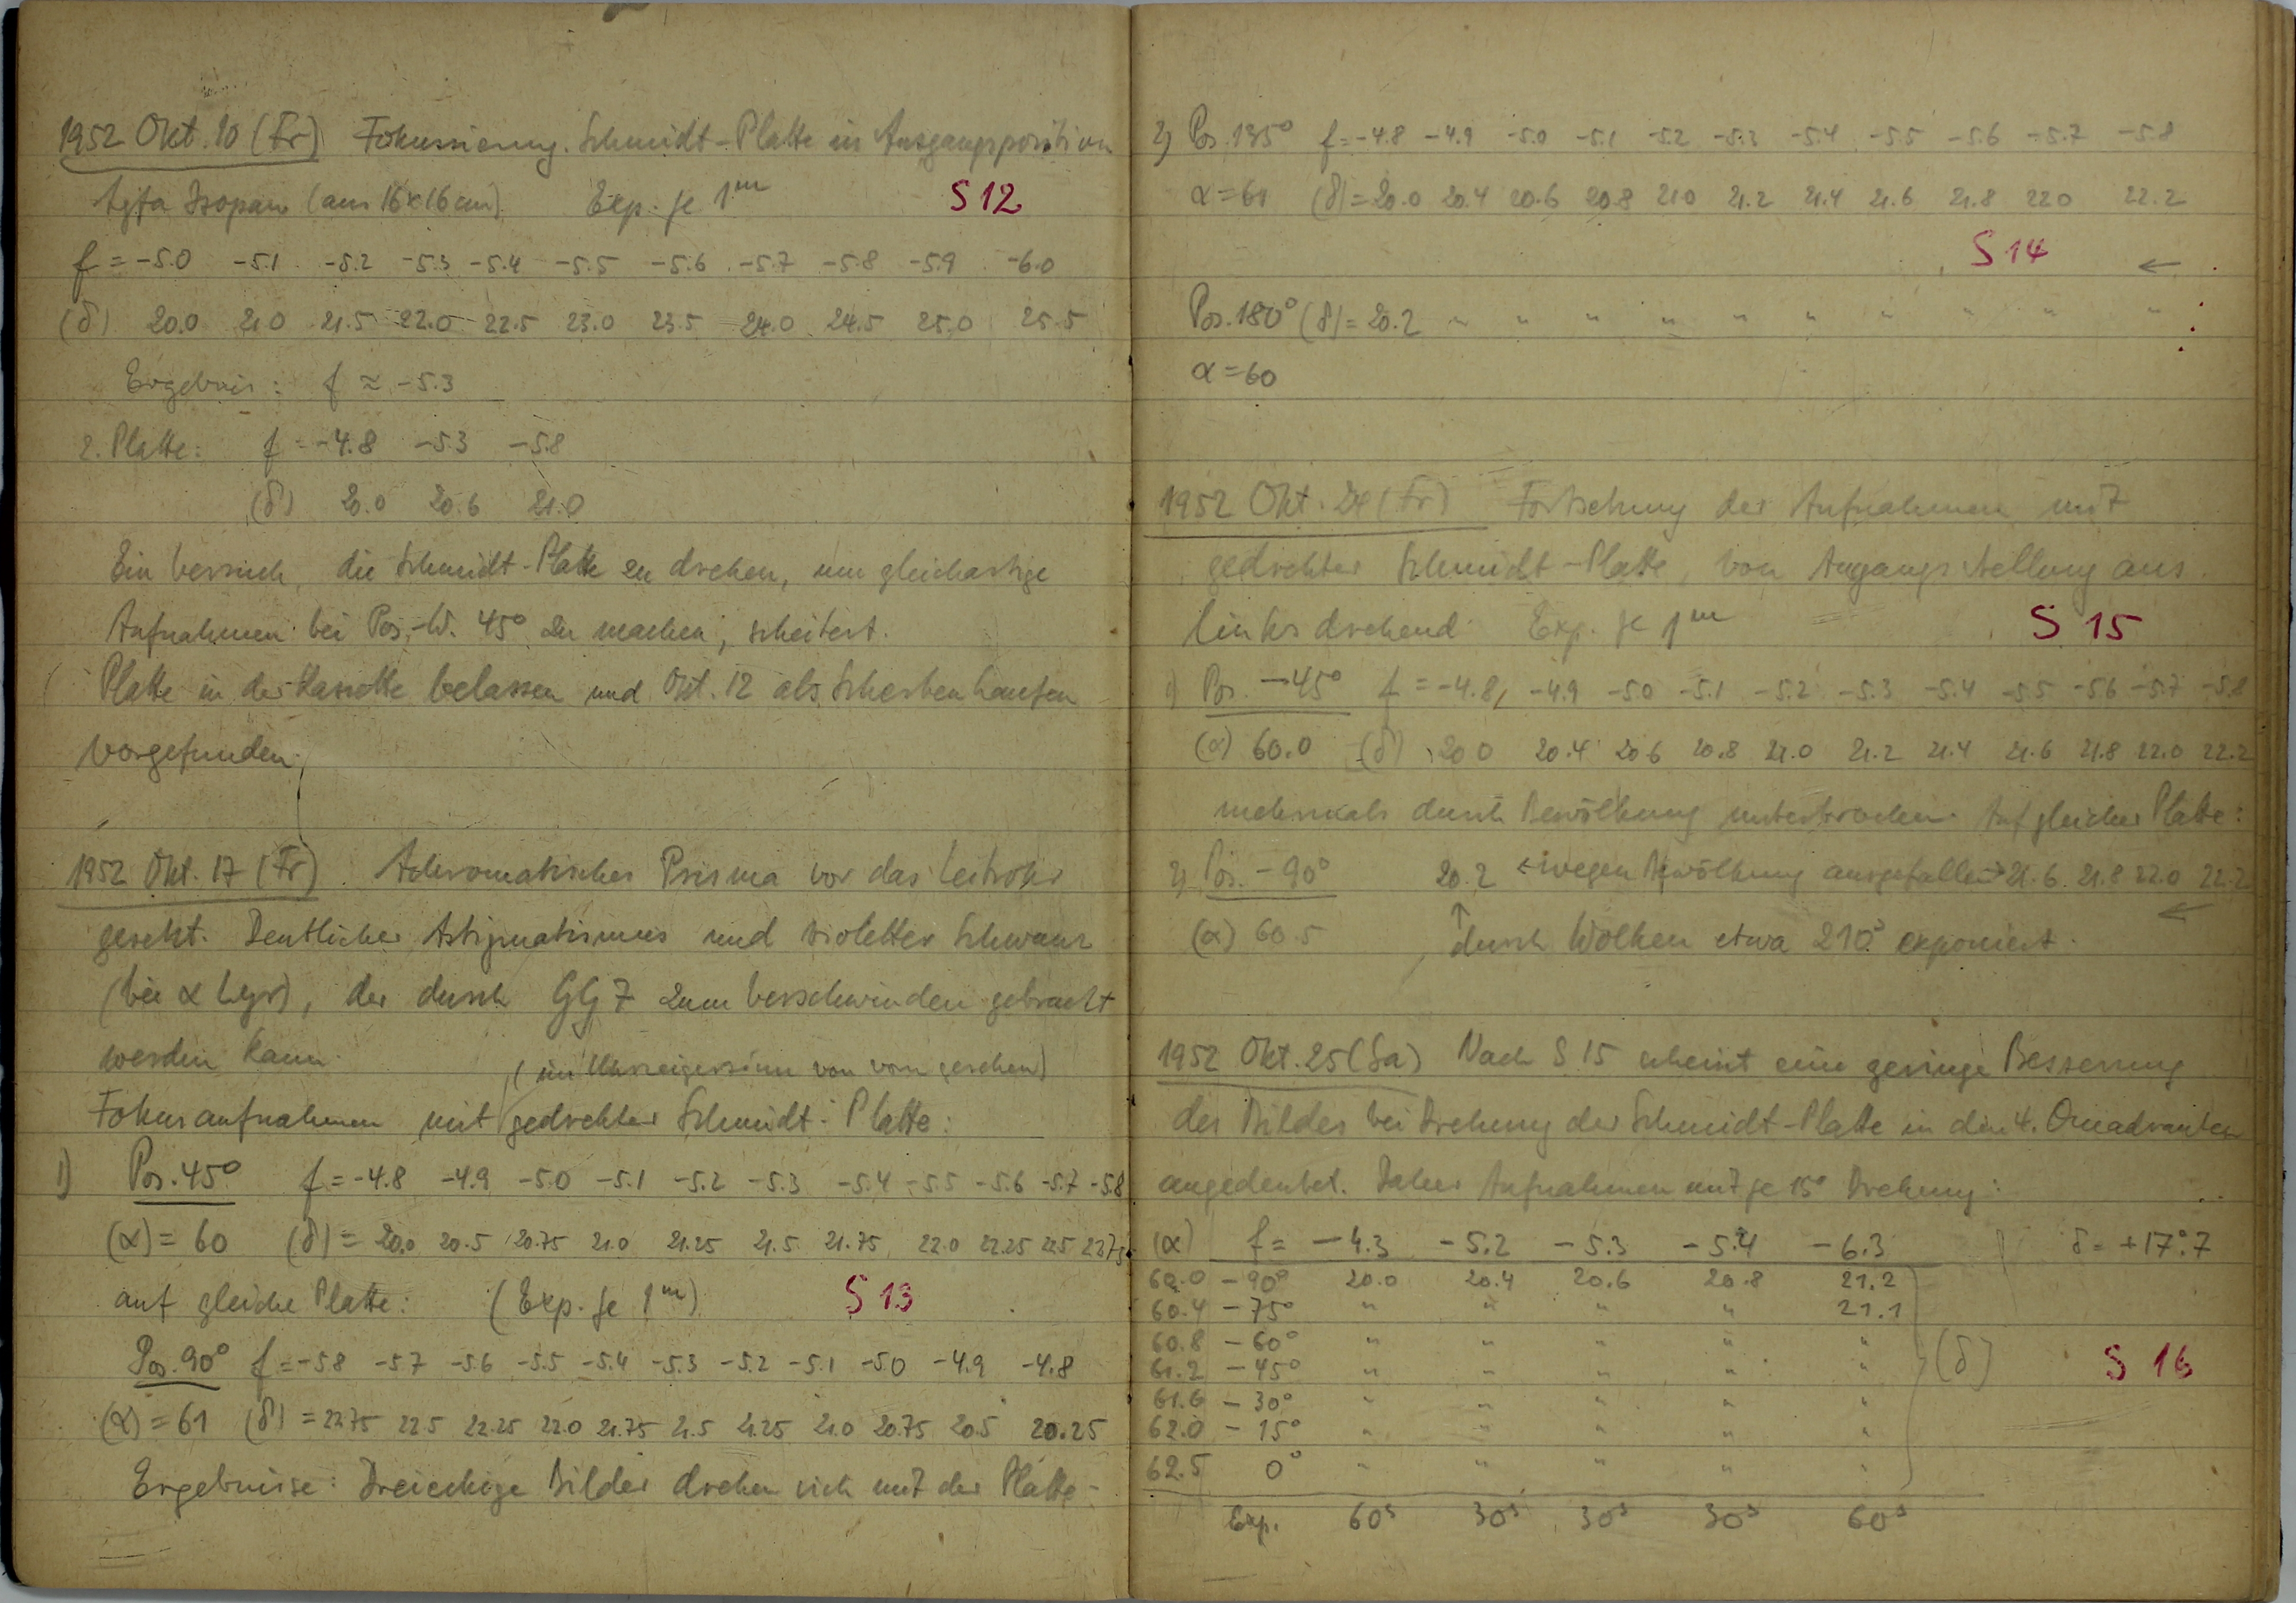 1952 Okt. 10 (Fr) Fokussierung. Schmidt-Platte in Ausgangsposition
Agfa Isopan (aus 16x16 cm) Exp. je 1m S 12
f = -5.0 -5.1 -5.2 -5.3 -5.4 -5.5 -5.6 -5.7 -5.8 -5.9 -6.0
(δ) 20.0 21.0 21.5 22.0 22.5 23.0 23.5 24.0 24.5 25.0 25.5
Ergebnis: f ≈ -5.3
2. Platte: f = -4.8 -5.3 -5.8
(δ) 20.0 20.6 21.0
Ein Versuch, die Schmidt-Platte zu drehen, um gleichartige
Aufnahmen bei Pos.-W. 45° zu machen, scheitert.
Platte in der Kassette belassen und Okt. 12 als Scherbenhaufen
vorgefunden.
1952 Okt. 17 (Fr). Achromatisches Prisma vor das Leitrohr
gesetzt. Deutlicher Astigmatismus und violetter Schwanz
(bei α Lyr), der durch GG 7 zum Verschwinden gebracht
werden kann.
(im Uhrzeigersinn von vorn gesehen)
Fokusaufnahmen mit gedrehter Schmidt-Platte:
1) Pos. 45° f = -4.8 -4.9 -5.0 -5.1 -5.2 -5.3 -5.4 -5.5 -5.6 -5.7 -5.8
(α) = 60 (δ) = 20.0 20.5 20.75 21.0 21.25 21.5 21.75 22.0 22.25 22.5 22.75
auf gleiche Platte: (Exp. je 1m) S 13
Pos. 90° f = -5.8 -5.7 -5.6 -5.5 -5.4 -5.3 -5.2 -5.1 -5.0 -4.9 -4.8
(α) = 61 (δ) = 22.75 22.5 22.25 22.0 21.75 21.5 21.25 21.0 20.75 20.5 20.25
Ergebnisse: Dreieckige Bilder drehen sich mit der Platte.
2) Pos. 135° f = -4.8 -4.9 -5.0 -5.1 -5.2 -5.3 -5.4 -5.5 -5.6 -5.7 -5.8
α = 61 (δ) = 20.0 20.4 20.6 20.8 21.0 21.2 21.4 21.6 21.8 22.0 22.2
S 14 ←
Pos. 180° (δ) = 20.2 " " " " " " " " " "
α = 60
1952 Okt. 24 (Fr) Fortsetzung der Aufnahmen mit
gedrehter Schmidt-Platte, von Angangsstellung aus
linksdrehend Exp. je 1m S 15
1) Pos. -45° f = -4.8, -4.9 -5.0 -5.1 -5.2 -5.3 -5.4 -5.5 -5.6 -5.7 -5.8
(α) 60.0 (δ) 20.0 20.4 20.6 20.8 21.0 21.2 21.4 21.6 21.8 22.0 22.2
mehrmals durch Bewölkung unterbrochen. Auf gleicher Platte:
2) Pos. -90° 20.2 ← wegen Bewölkung ausgefallen → 21.6 21.8 22.0 22.2
(α) 60.5 ↑ durch Wolken etwa 210s exponiert. ←
1952 Okt. 25 (Sa) Nach S 15 scheint eine geringe Besserung
des Bildes bei Drehung der Schmidt-Platte in den 4. Quadranten
angedeutet. Daher Aufnahmen mit je 15° Drehung:
(α) f = -4.3 -5.2 -5.3 -5.4 -6.3 δ = +17°.7
60.0 -90° 20.0 20.4 20.6 20.8 21.2
60.4 -75° " " " " 21.1
60.8 -60° " " " " "
61.2 -45° " " " " " (δ) S 16
61.6 -30° " " " " "
62.0 -15° " " " " "
62.5 0° " " " " "
Exp. 60s 30s 30s 30s 60s